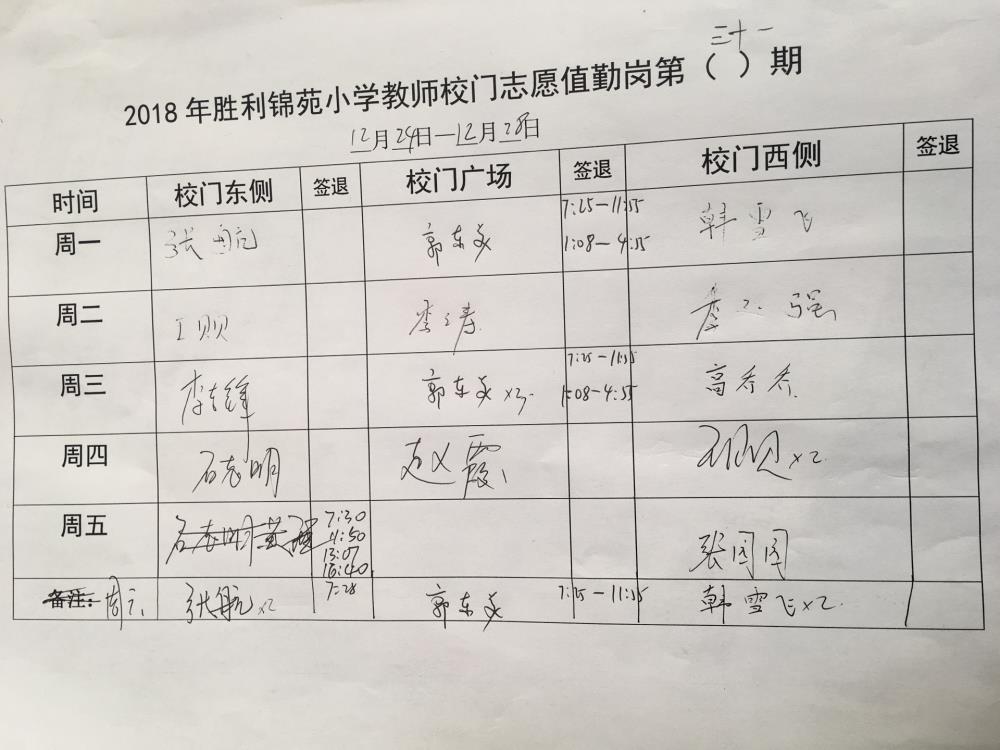 三十一
2018年胜利锦苑小学教师校门志愿值勤岗第（ ）期
12月24日—12月28日
时间 校门东侧 签退 校门广场 签退 校门西侧 签退
周一 张航 郭东文 7:25-11:55 韩雪飞
1:08-4:55
周二 李涛 李二强
周三 郭东文×3 7:25-11:55 高香香
1:08-4:55
周四 石志明 赵义霞 ×2
周五 石志明 黄强 7:30 张图图
11:50
13:07
16:40
备注： 周六 张航×2 7:28 郭东文 7:25-11:55 韩雪飞×2